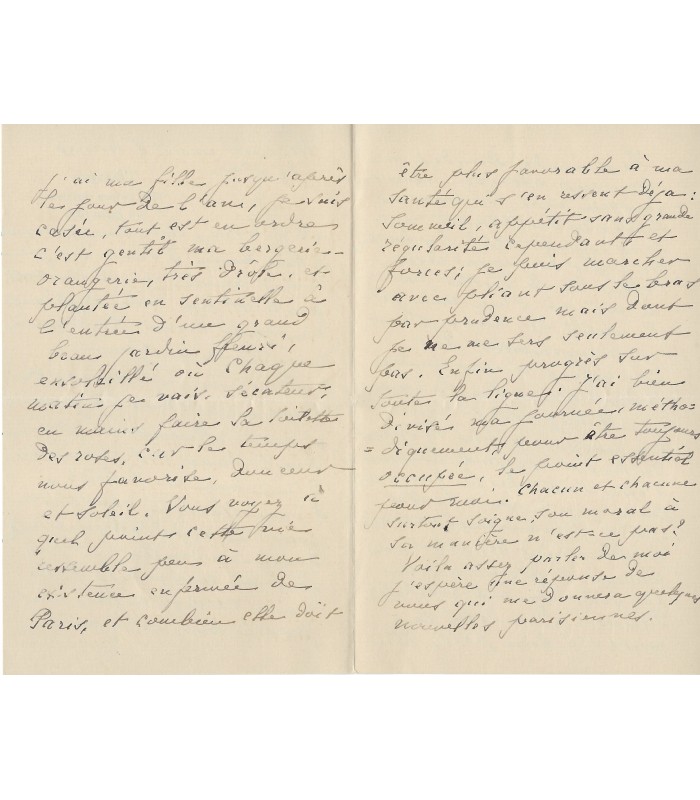 j'ai ma fille jusqu'après
les jours de l'an, je suis
casée, tout est en ordre
c'est gentil ma bergerie-
orangerie, très drôle, et
plantée en sentinelle à
l'entrée d'un grand
beau jardin fleuri,
ensoleillé où chaque
matin je vais, sécateur
en mains faire la toilette
des roses, car le temps
nous favorise, douceur
et soleil. Vous voyez à
quel point cette vie
ressemble peu à mon
existence enfermée de
Paris, et combien elle doit
être plus favorable à ma
santé qui s'en ressent déjà :
sommeil, appétit sans grande
régularité cependant et
forces ; je puis marcher
avec pliant sous le bras
par prudence mais dont
je ne me sers seulement
pas. Enfin progrès sur
toutes la ligne ; j'ai bien
divisés ma journée, métho-
=diquement pour être toujours
occupée, le point essentiel
pour moi. Chacun et chacune
surtout soigne son moral à
sa manière n'est-ce pas ?
Voilà assez parler de moi
j'espère une réponse de
vous qui me donnera quelques
nouvelles parisiennes.